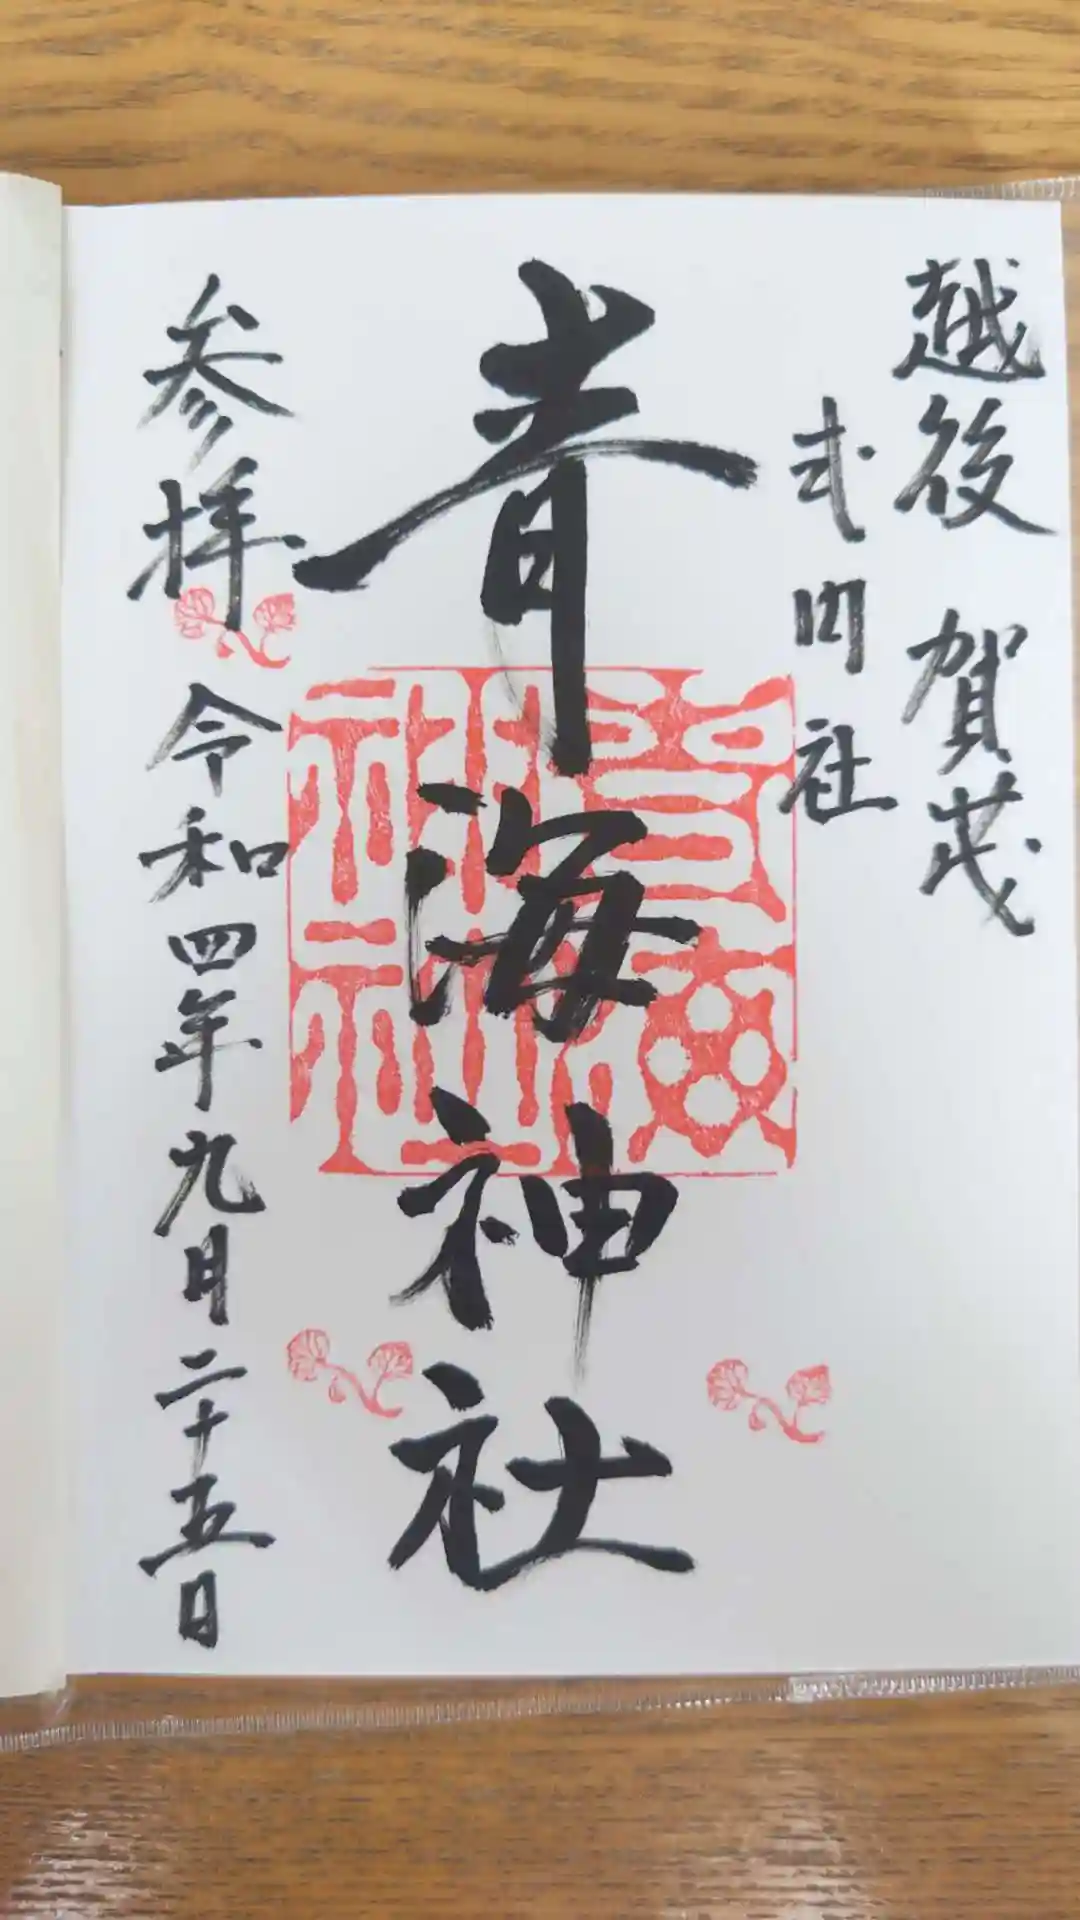 越後 賀茂
式内社
青海神社
参拝 令和四年九月二十五日